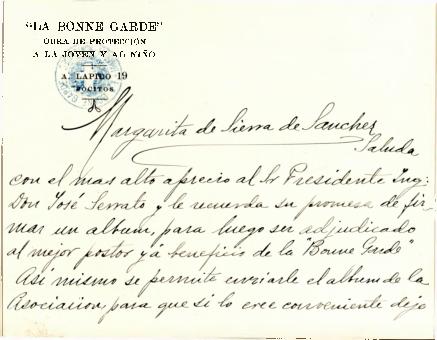 "LA BONNE GARDE"
OBRA DE PROTECCIÓN
A LA JOVEN Y AL NIÑO
A. LAPIDO 19
POCITOS
Margarita de Sierra de Sanchez
Saluda
con el mas alto aprecio al Sr Presidente Ing:
Don José Serrato y le recuerda su promesa de fir
mar un album, para luego ser adjudicado
al mejor postor y á beneficio de la "Bonne Garde"
Asi mismo se permite enviarle el album de la
Asociacion, para que si lo cree conveniente deje